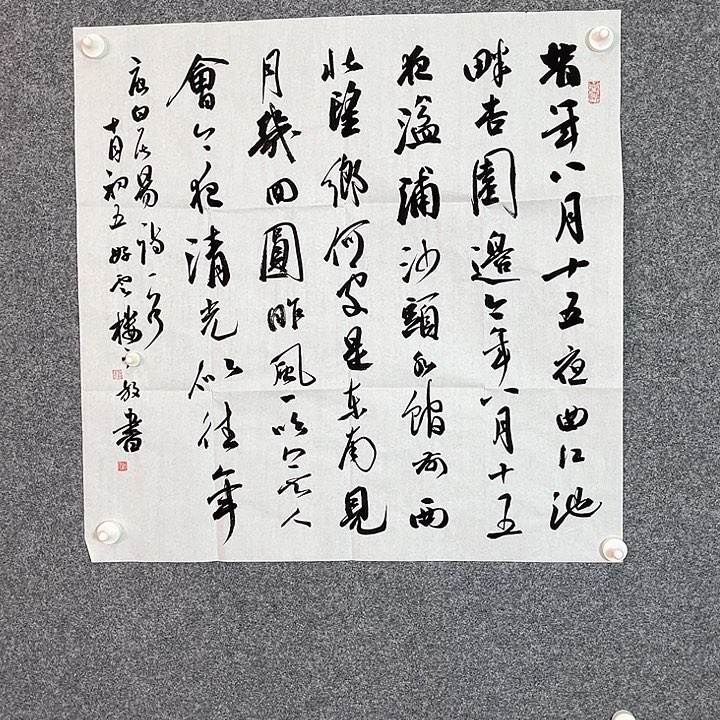 昔年八月十五夜曲江池
畔杏園邊今年八月十五
夜湓浦沙頭水館前西
北望鄉何處是東南見
月幾回圓昨風一吹無人
會今夜清光似往年
唐白居易詩一首
十月初五好雲樓書